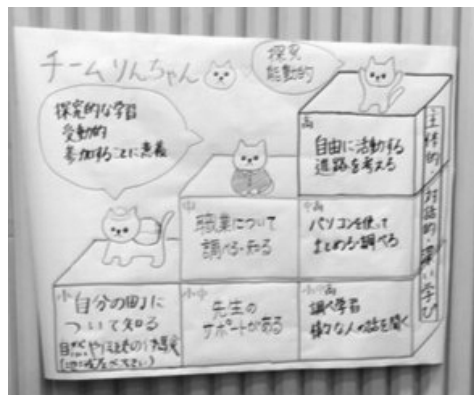 チームりんちゃん
探究
能動的
探究的な学習
受動的
参加することに意義
高
自由に活動する
進路を考える
主体的・対話的・深い学び
中
職業について
調べる・知る
中高
パソコンを使って
まとめる・調べる
小
自分の町に
ついて知る
小中
先生の
サポートがある
小中高
調べ学習
様々な人の話を聞く